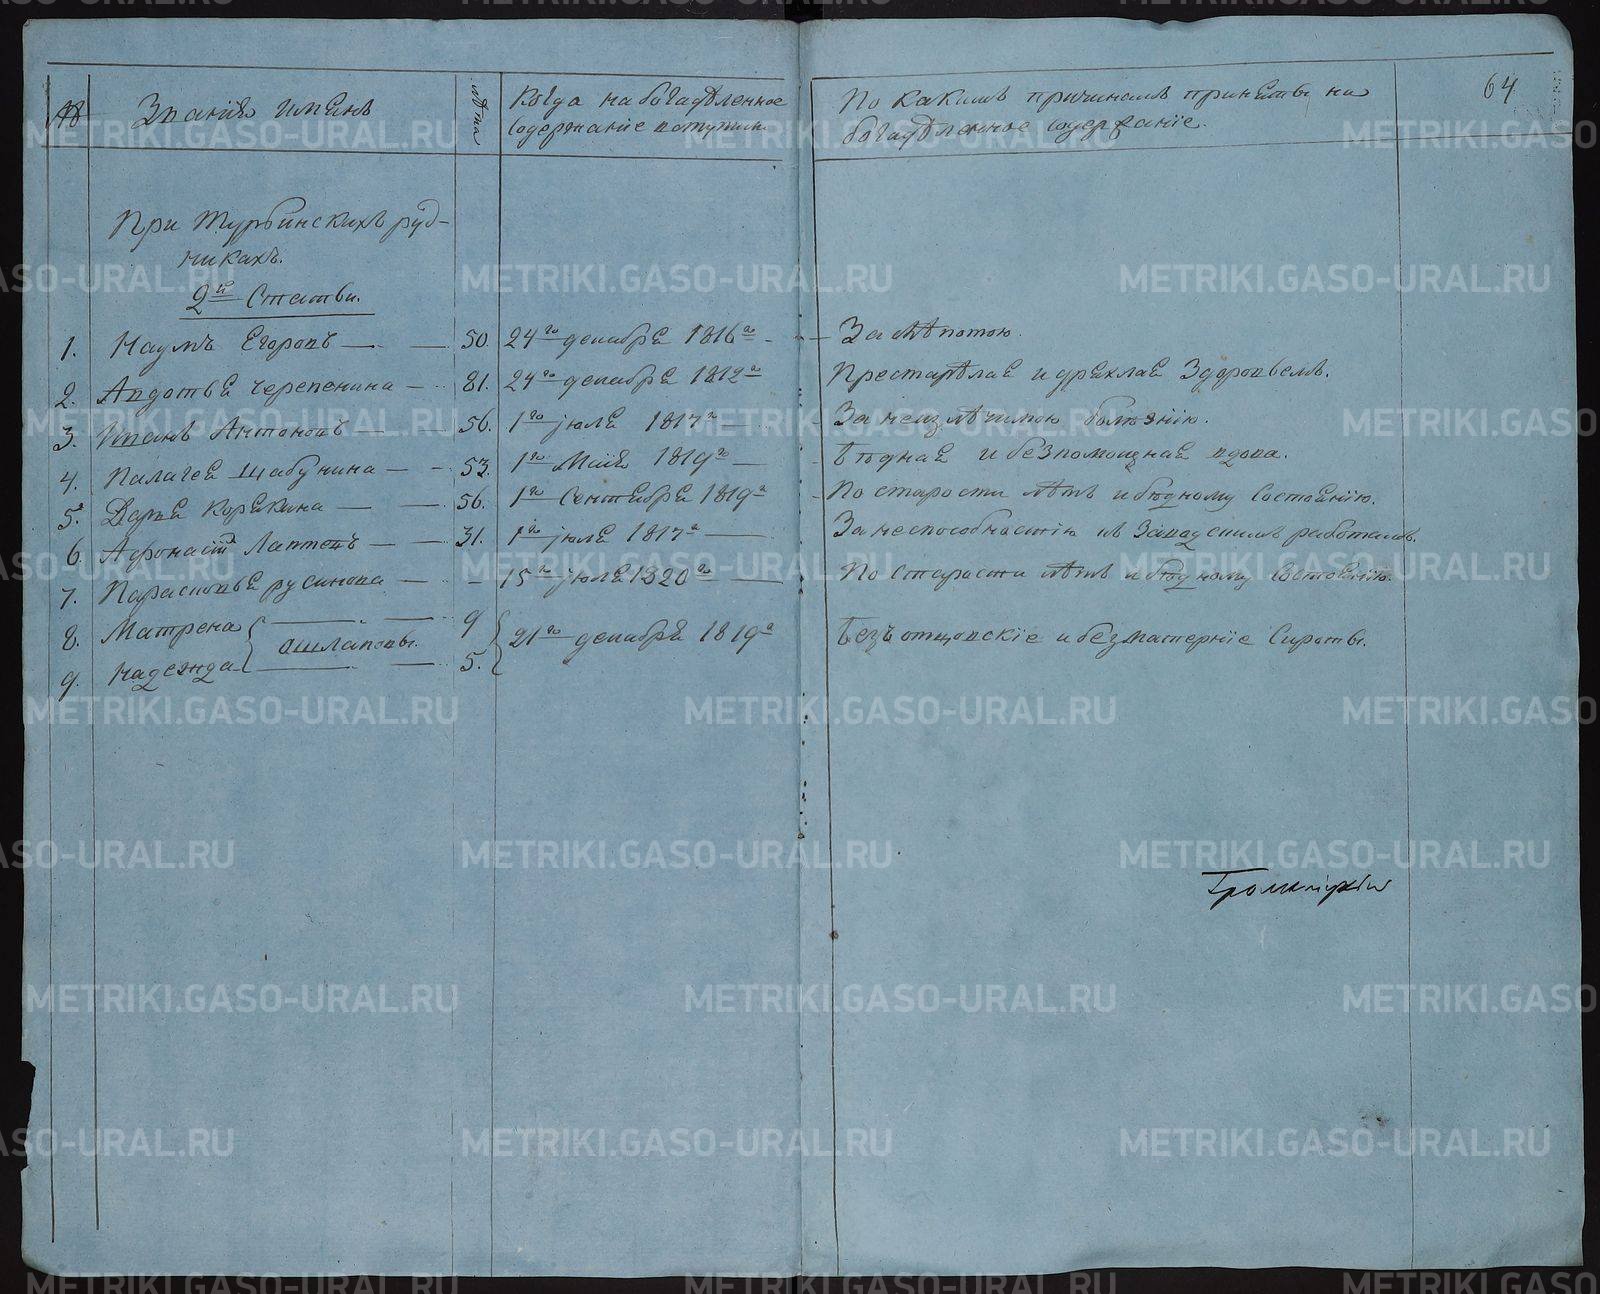 №
Званiе именъ
лѣта
Когда на богадѣленное
содержанiе поступили
По какимъ причинамъ приняты на
богадѣленное содержанiе.
64
При Турьинскихъ руд-
никахъ.
2й Статьи.
1. Наумъ Егоровъ — — 50. 24го декабря 1816го — За слѣпотою.
2. Авдотья Черепенина — 81. 24го декабря 1812го Престарѣлая и дряхлая здоровьемъ.
3. Иванъ Антоновъ — — 56. 1го iюля 1817го — За неизлѣчимою болѣзнiю.
4. Палагея Шабунина — — 53. 1го Маiя 1819го — Бѣдная и безпомощная вдова.
5. Дарья Корякина — — 56. 1го Сентября 1819го По старости лѣтъ и бѣдному состоянiю.
6. Афонасiй Лаптевъ — — 31. 1го iюля 1817го — За неспособностiю къ заводскимъ работамъ.
7. Парасковья Русинова — — 15го iюля 1820го — По старости лѣтъ и бѣдному состоянiю.
8. Матрена — — 9
Ошлаповы. 21го декабря 1819го Безъ отцовскiе и безматернiе Сироты.
9. Надежда — — 5.